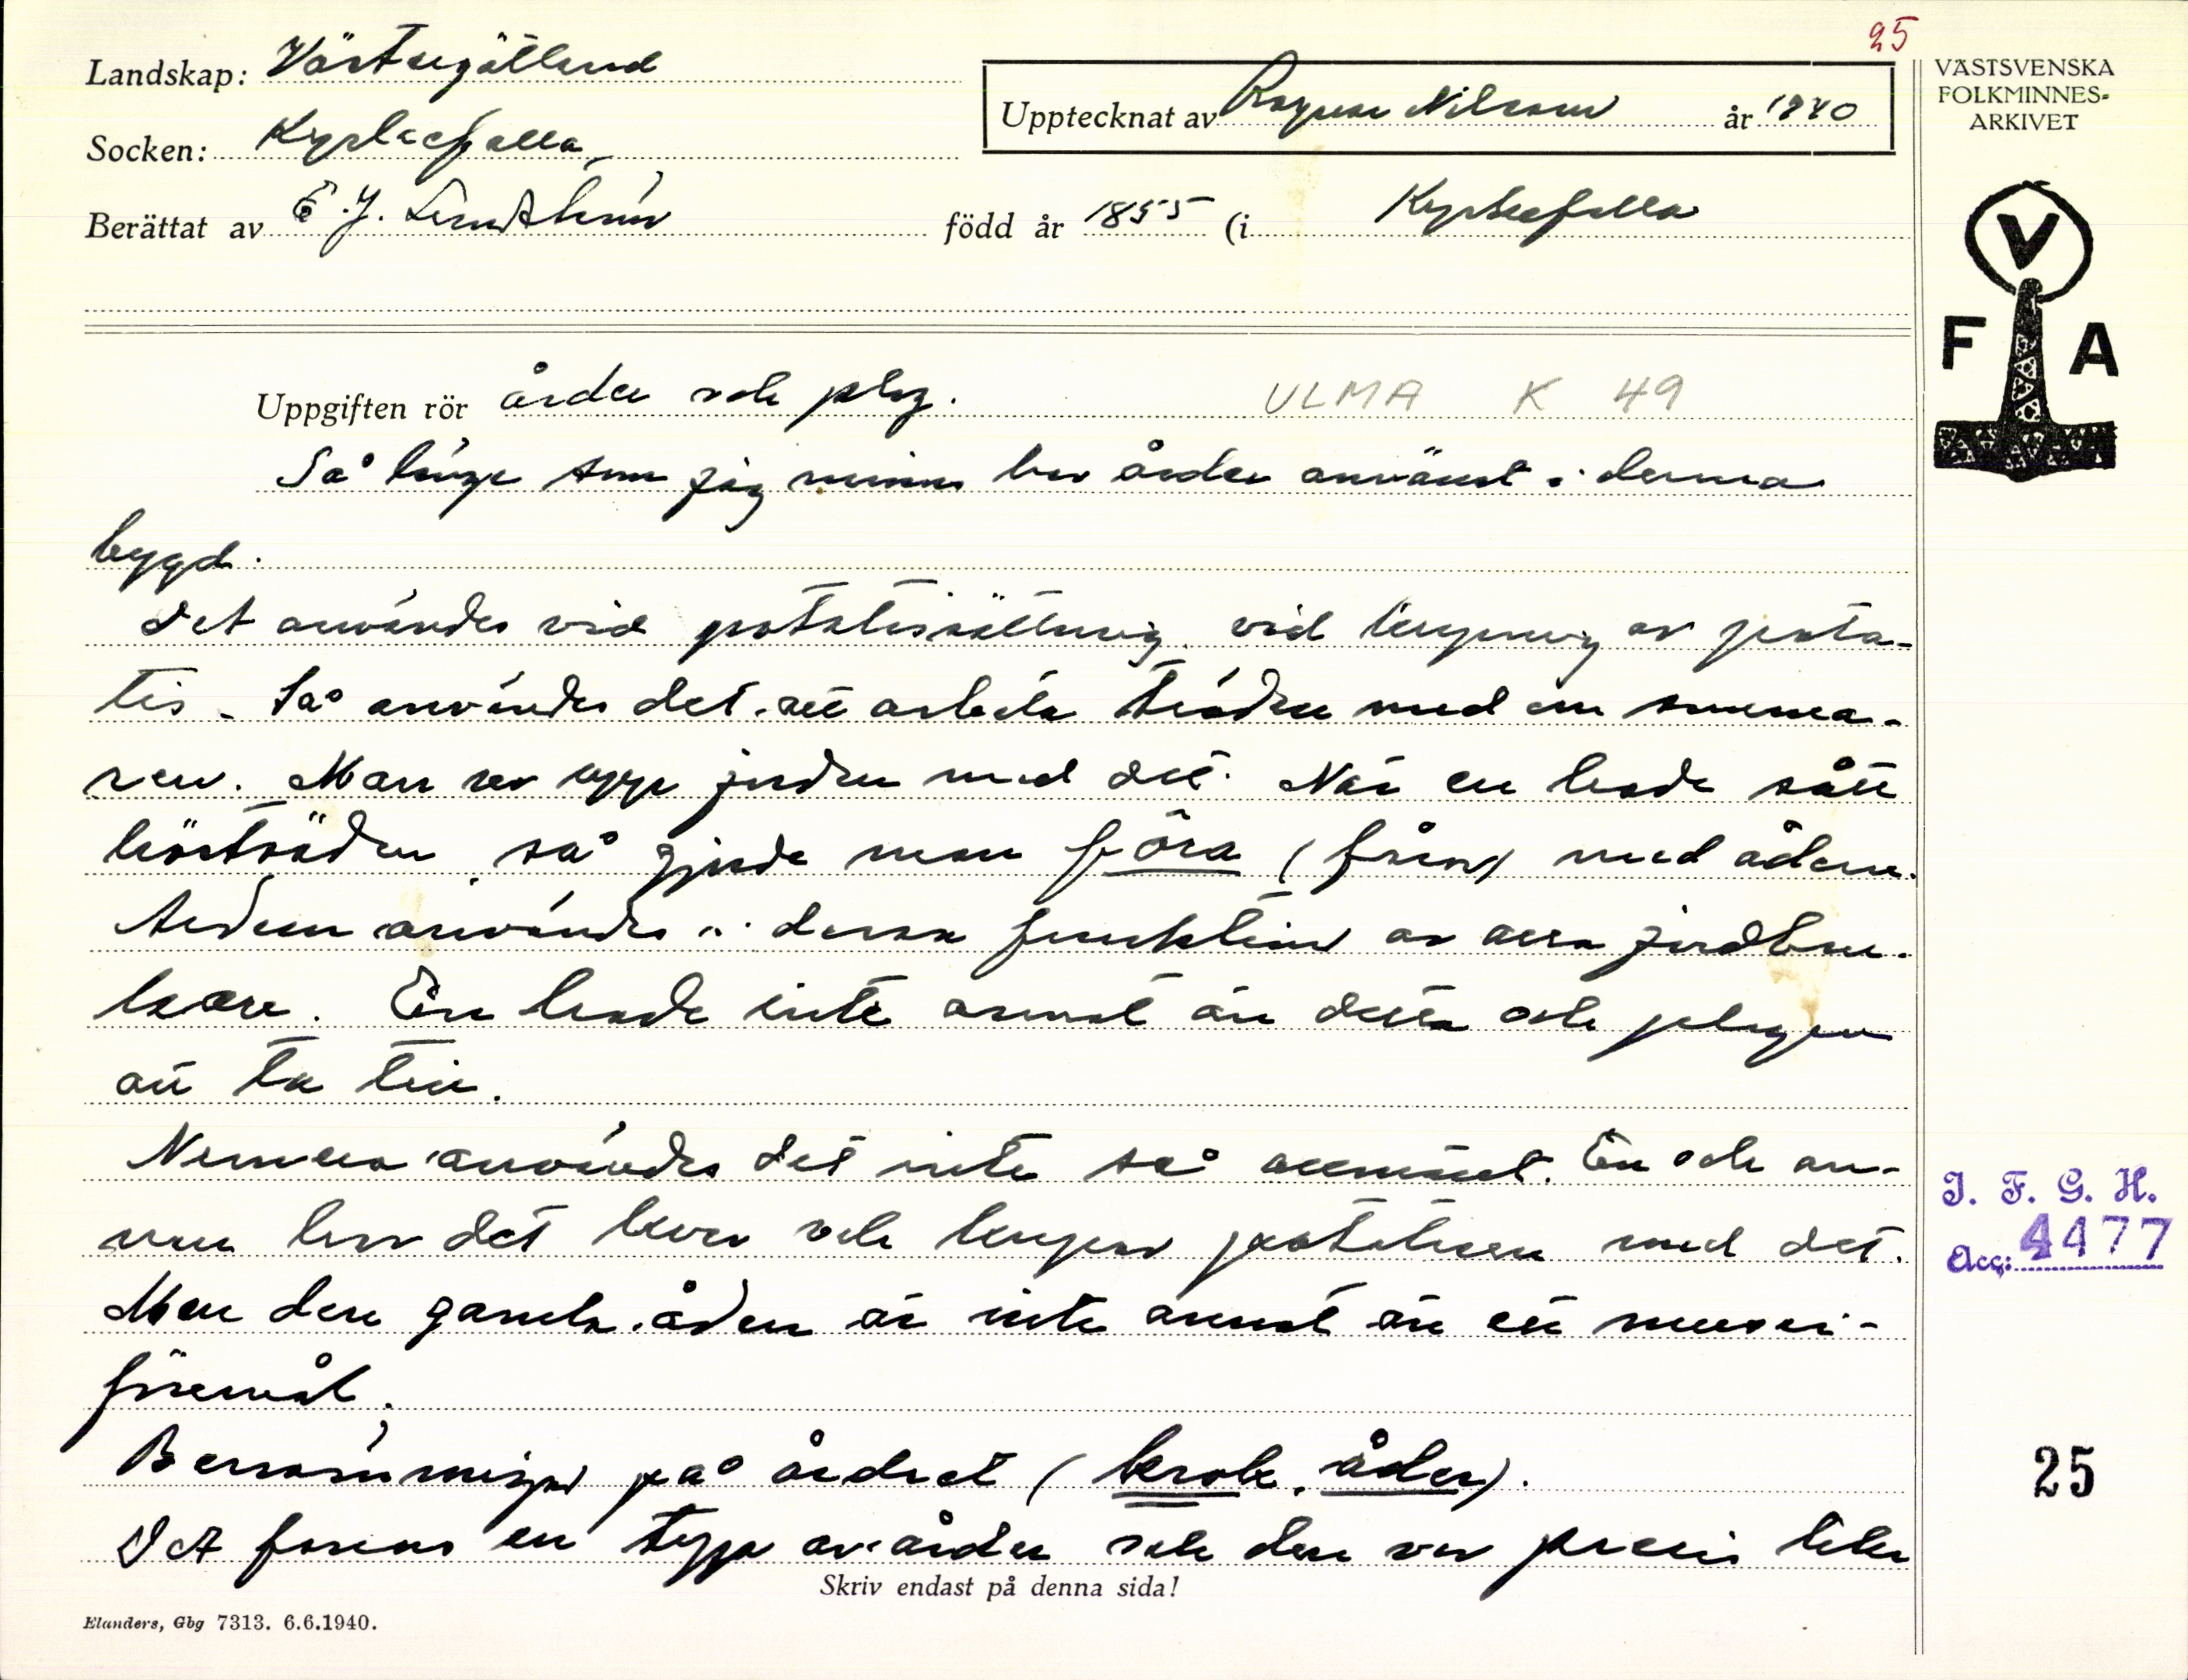 25
Landskap: Västergötland
Upptecknat av Ragnar Nilsson år 1940
VÄSTSVENSKA
FOLKMINNES-
ARKIVET
Socken: Kyrkefalla
Berättat av E. J. född år 1855 (i Kyrkefalla
V
F A
Uppgiften rör årder och plog.
ULMA K 49
Så länge som jag minns har årder använt i denna
bygd.
Det användes vid potatissättning, vid kupning av pota-
tis. Så användes det att arbeta trädan med om somma-
ren. Man rev upp jorden med det. När en hade sått
höstsäden, så gjorde man fôra (fåror) med ådern.
Ardern användes i denna funktion av alla jordbru-
kare. En hade inte annat än detta och plogen
att ta till.
Numera användes det inte så allmänt. En och an-
nan har det kvar och kupar potatisen med det.
Men den gamla ådern är inte annat än ett musei-
föremål.
Benämningar på årdret (krok, åder).
Det fanns en typ av årder och den var precis lika
Skriv endast på denna sida!
Elanders, Gbg 7313. 6.6.1940.
I. F. G. H.
Acc: 4477
25